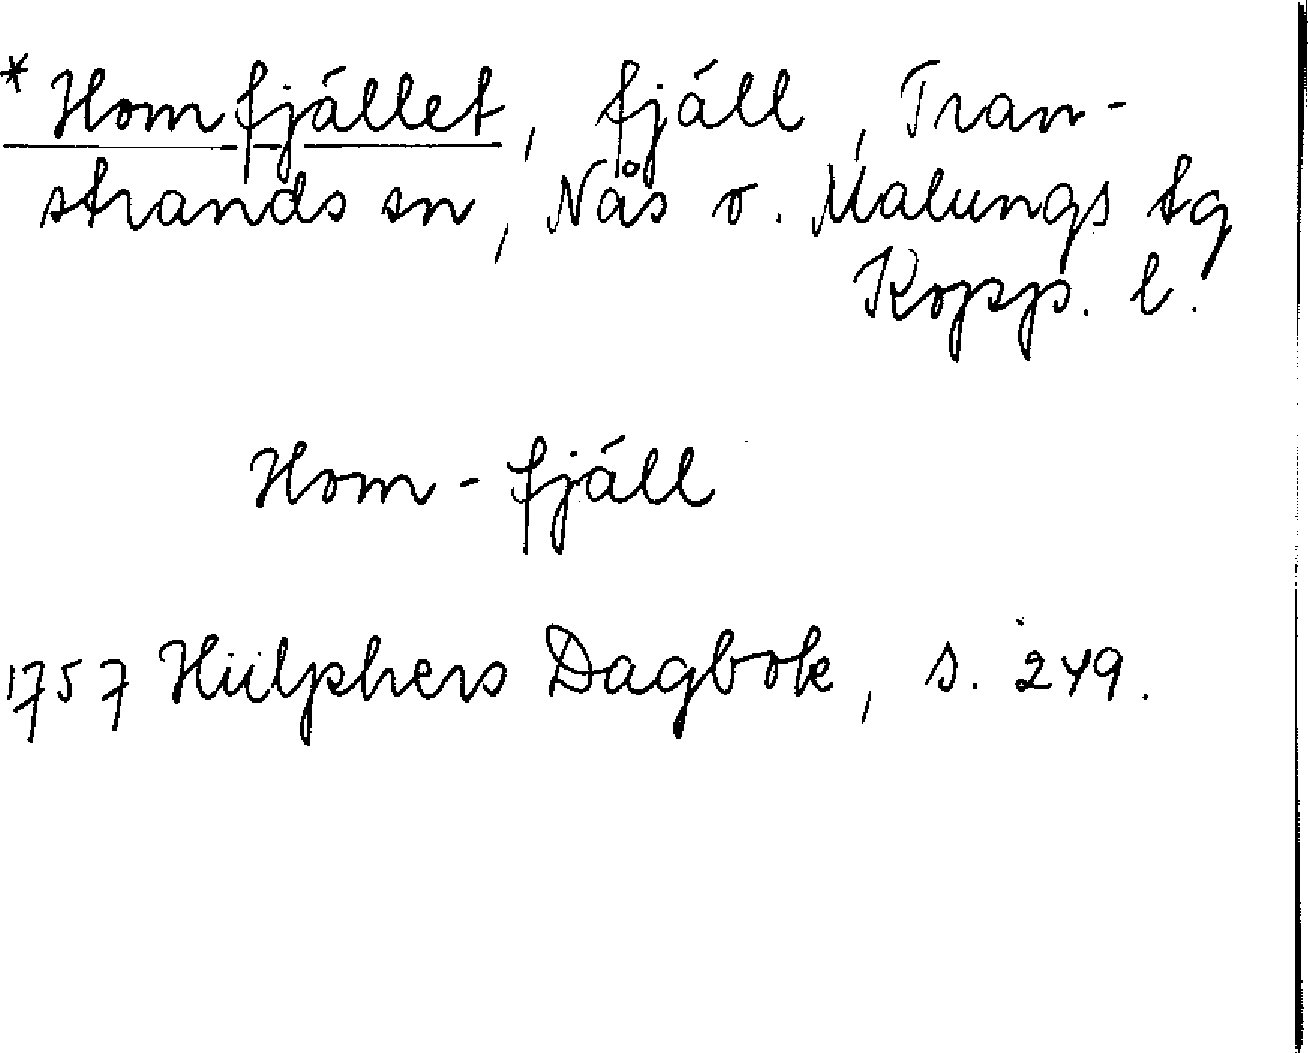 *Homfjället, fjäll, Tran-
strands sn, Nås o. Malungs tg
Kopp. l.
Hom-fjäll
1757 Hülphers Dagbok, s. 249.